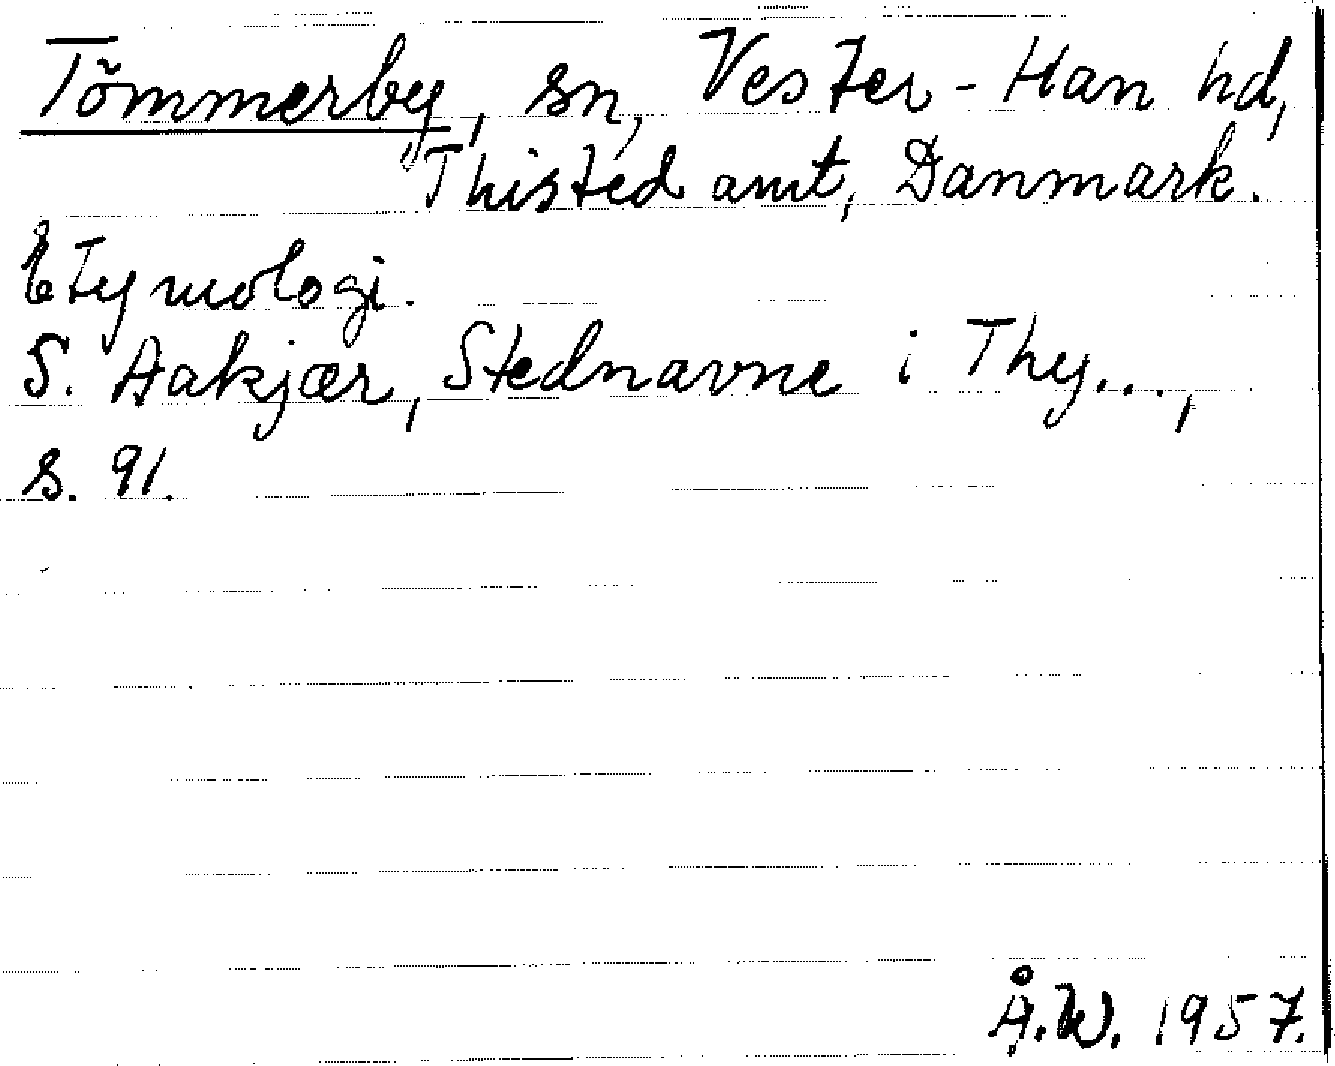 Tömmerby, sn, Vester-Han hd,
Thisted amt, Danmark.
Etymologi.
S. Aakjær, Stednavne i Thy...,
s. 91.
Å.W. 1957.